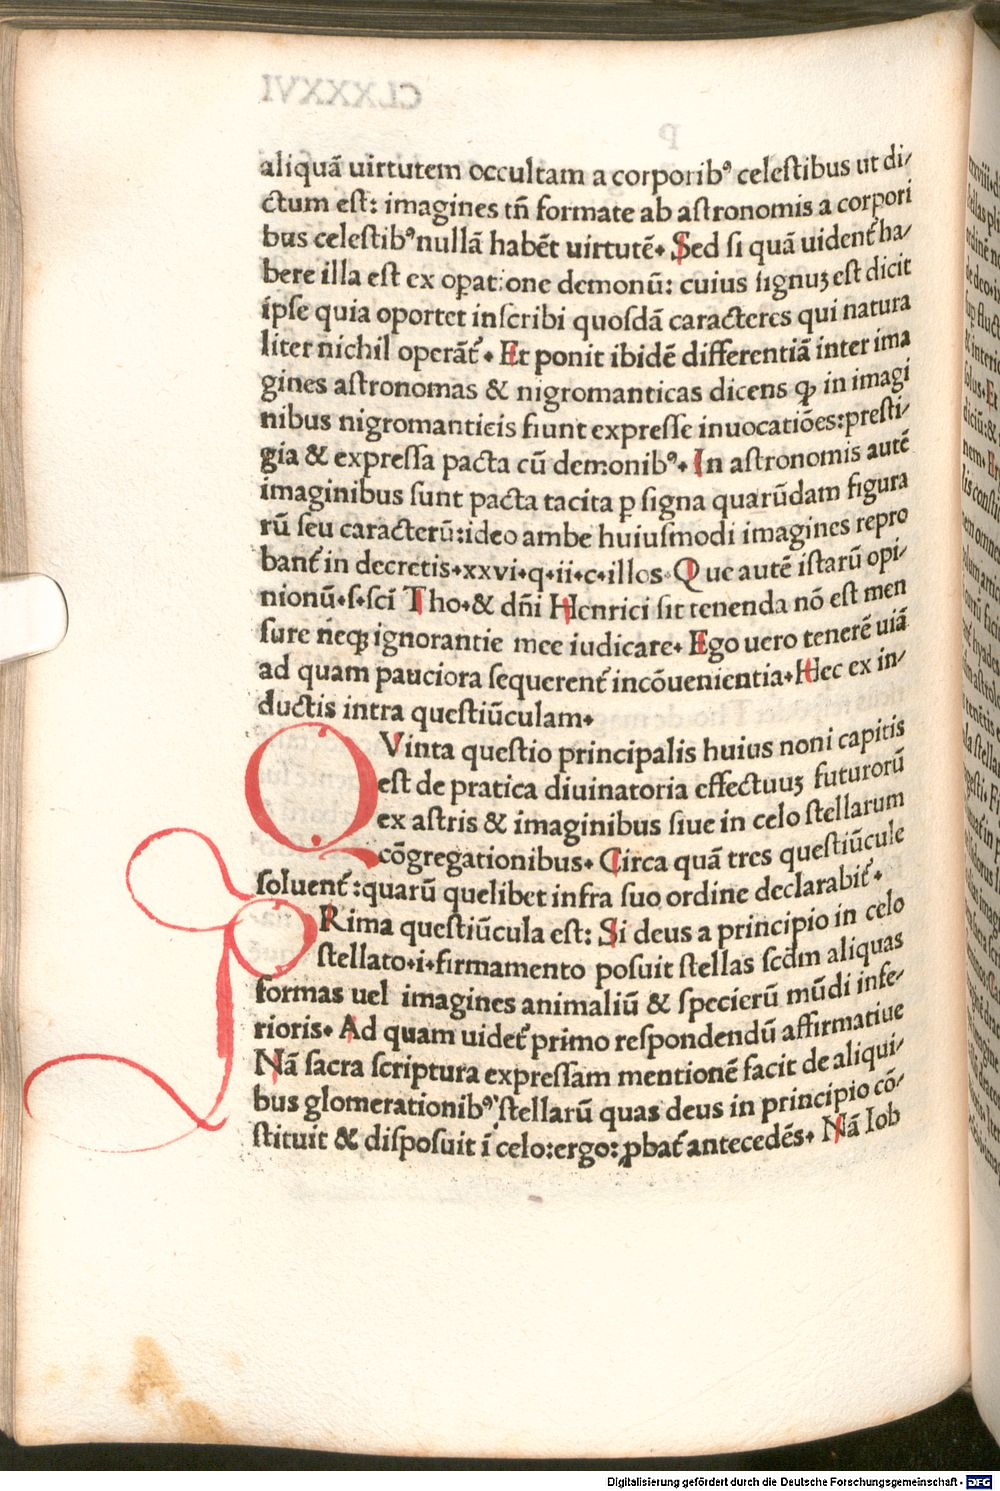 aliquā uirtutem occultam a corporibꝰ celeſtibus ut di/
ctum eſt: imagines tñ formate ab aſtronomis a corpori
bus celeſtibꝰ nullā habēt uirtutē. Sed ſi quā uident᷑ ha/
bere illa eſt ex oꝑatione demonū: cuius ſignuꝫ eſt dicit
ipſe quia oportet inſcribi quoſdā caracteres qui natura
liter nichil operāt᷑. Et ponit ibidē differentiā inter ima
gines aſtronomas & nigromanticas dicens ꝙ in imagi
nibus nigromanticis fiunt expreſſe inuocatiōes: preſti/
gia & expreſſa pacta cū demonibꝰ. In aſtronomis autē
imaginibus ſunt pacta tacita ꝑ ſigna quarūdam figura
rū ſeu caracterū: ideo ambe huiuſmodi imagines repro
bant᷑ in decretis.xxvi.q.ii.c.illos. Que autē iſtarū opi/
nionū.ſ.ſci Tho.& dñi Henrici ſit tenenda nō eſt men
ſure neqꝫ ignorantie mee iudicare. Ego uero tenerē uiā
ad quam pauciora ſequerent᷑ incōuenientia. Hec ex in/
ductis intra queſtiūculam.
QVinta queſtio principalis huius noni capitis
eſt de pratica diuinatoria effectuuꝫ futurorū
ex aſtris & imaginibus ſiue in celo ſtellarum
cōgregationibus. Circa quā tres queſtiūcule
ſoluent᷑: quarū quelibet infra ſuo ordine declarabit᷑.
PRima queſtiūcula eſt: Si deus a principio in celo
ſtellato.i.firmamento poſuit ſtellas ſcdm aliquas
formas uel imagines animaliū & ſpecierū mūdi infe/
rioris. Ad quam uidet᷑ primo reſpondendū affirmatiue
Nā ſacra ſcriptura expreſſam mentionē facit de aliqui/
bus glomerationibꝰ ſtellarū quas deus in principio cō/
ſtituit & diſpoſuit ī celo: ergo: ꝓbat᷑ antecedēs. Nā Iob
Digitalisierung gefördert durch die Deutsche Forschungsgemeinschaft - DFG